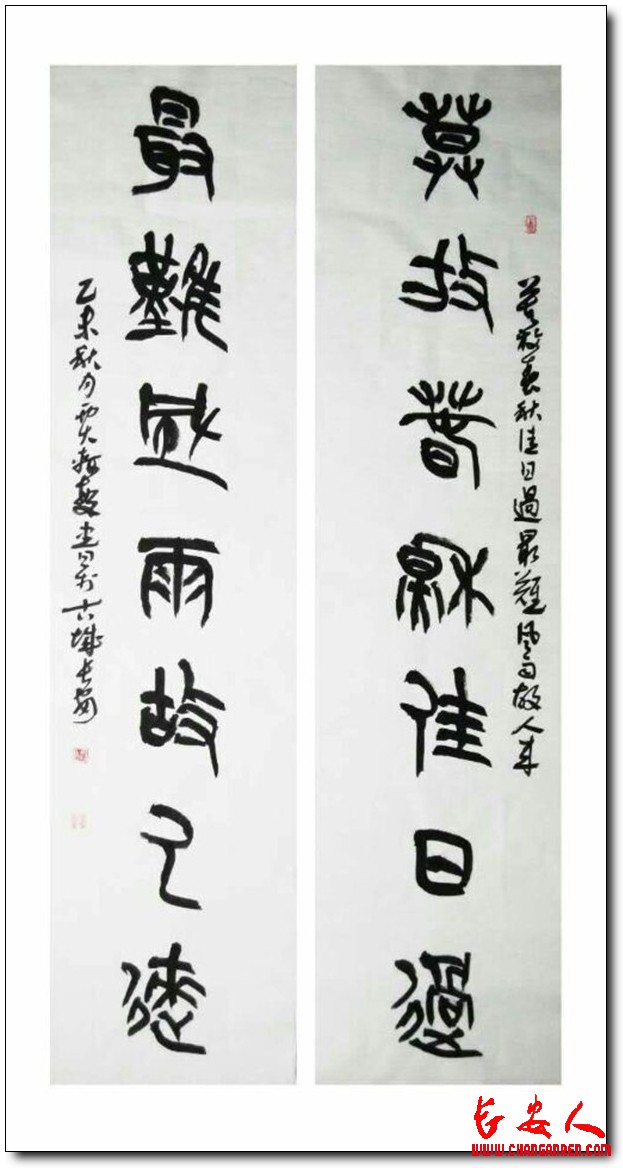 莫放春秋佳日過最難風雨故人來
莫放春秋佳日過
最難風雨故人來
乙未秋月賈書於古城長安
长安人
WWW.CHANGANREN.COM